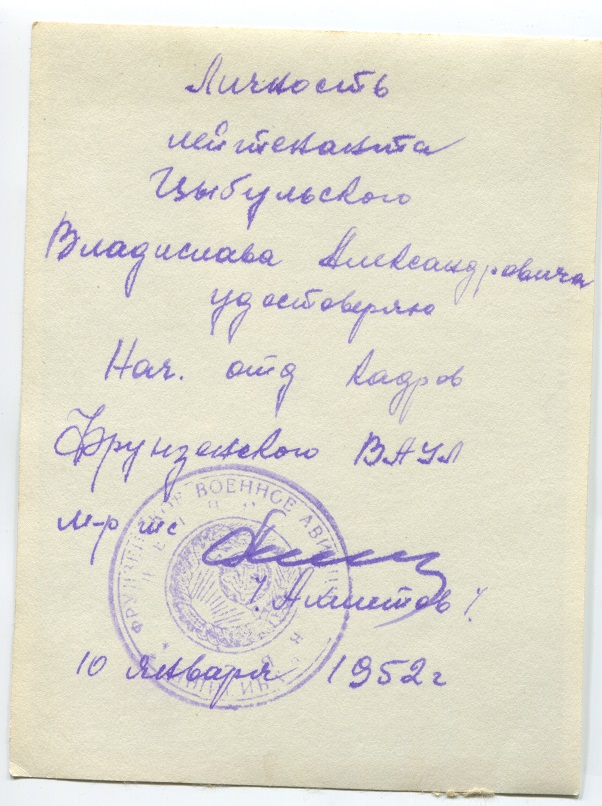 Личность
лейтенанта
Цыбульского
Владислава Александровича
удостоверяю
Нач. отд кадров
Фрунзенского ВАУЛ
м-р тс
/.Ахметов/.
10 января 1952г
ФРУНЗЕНСКОЕ ВОЕННОЕ